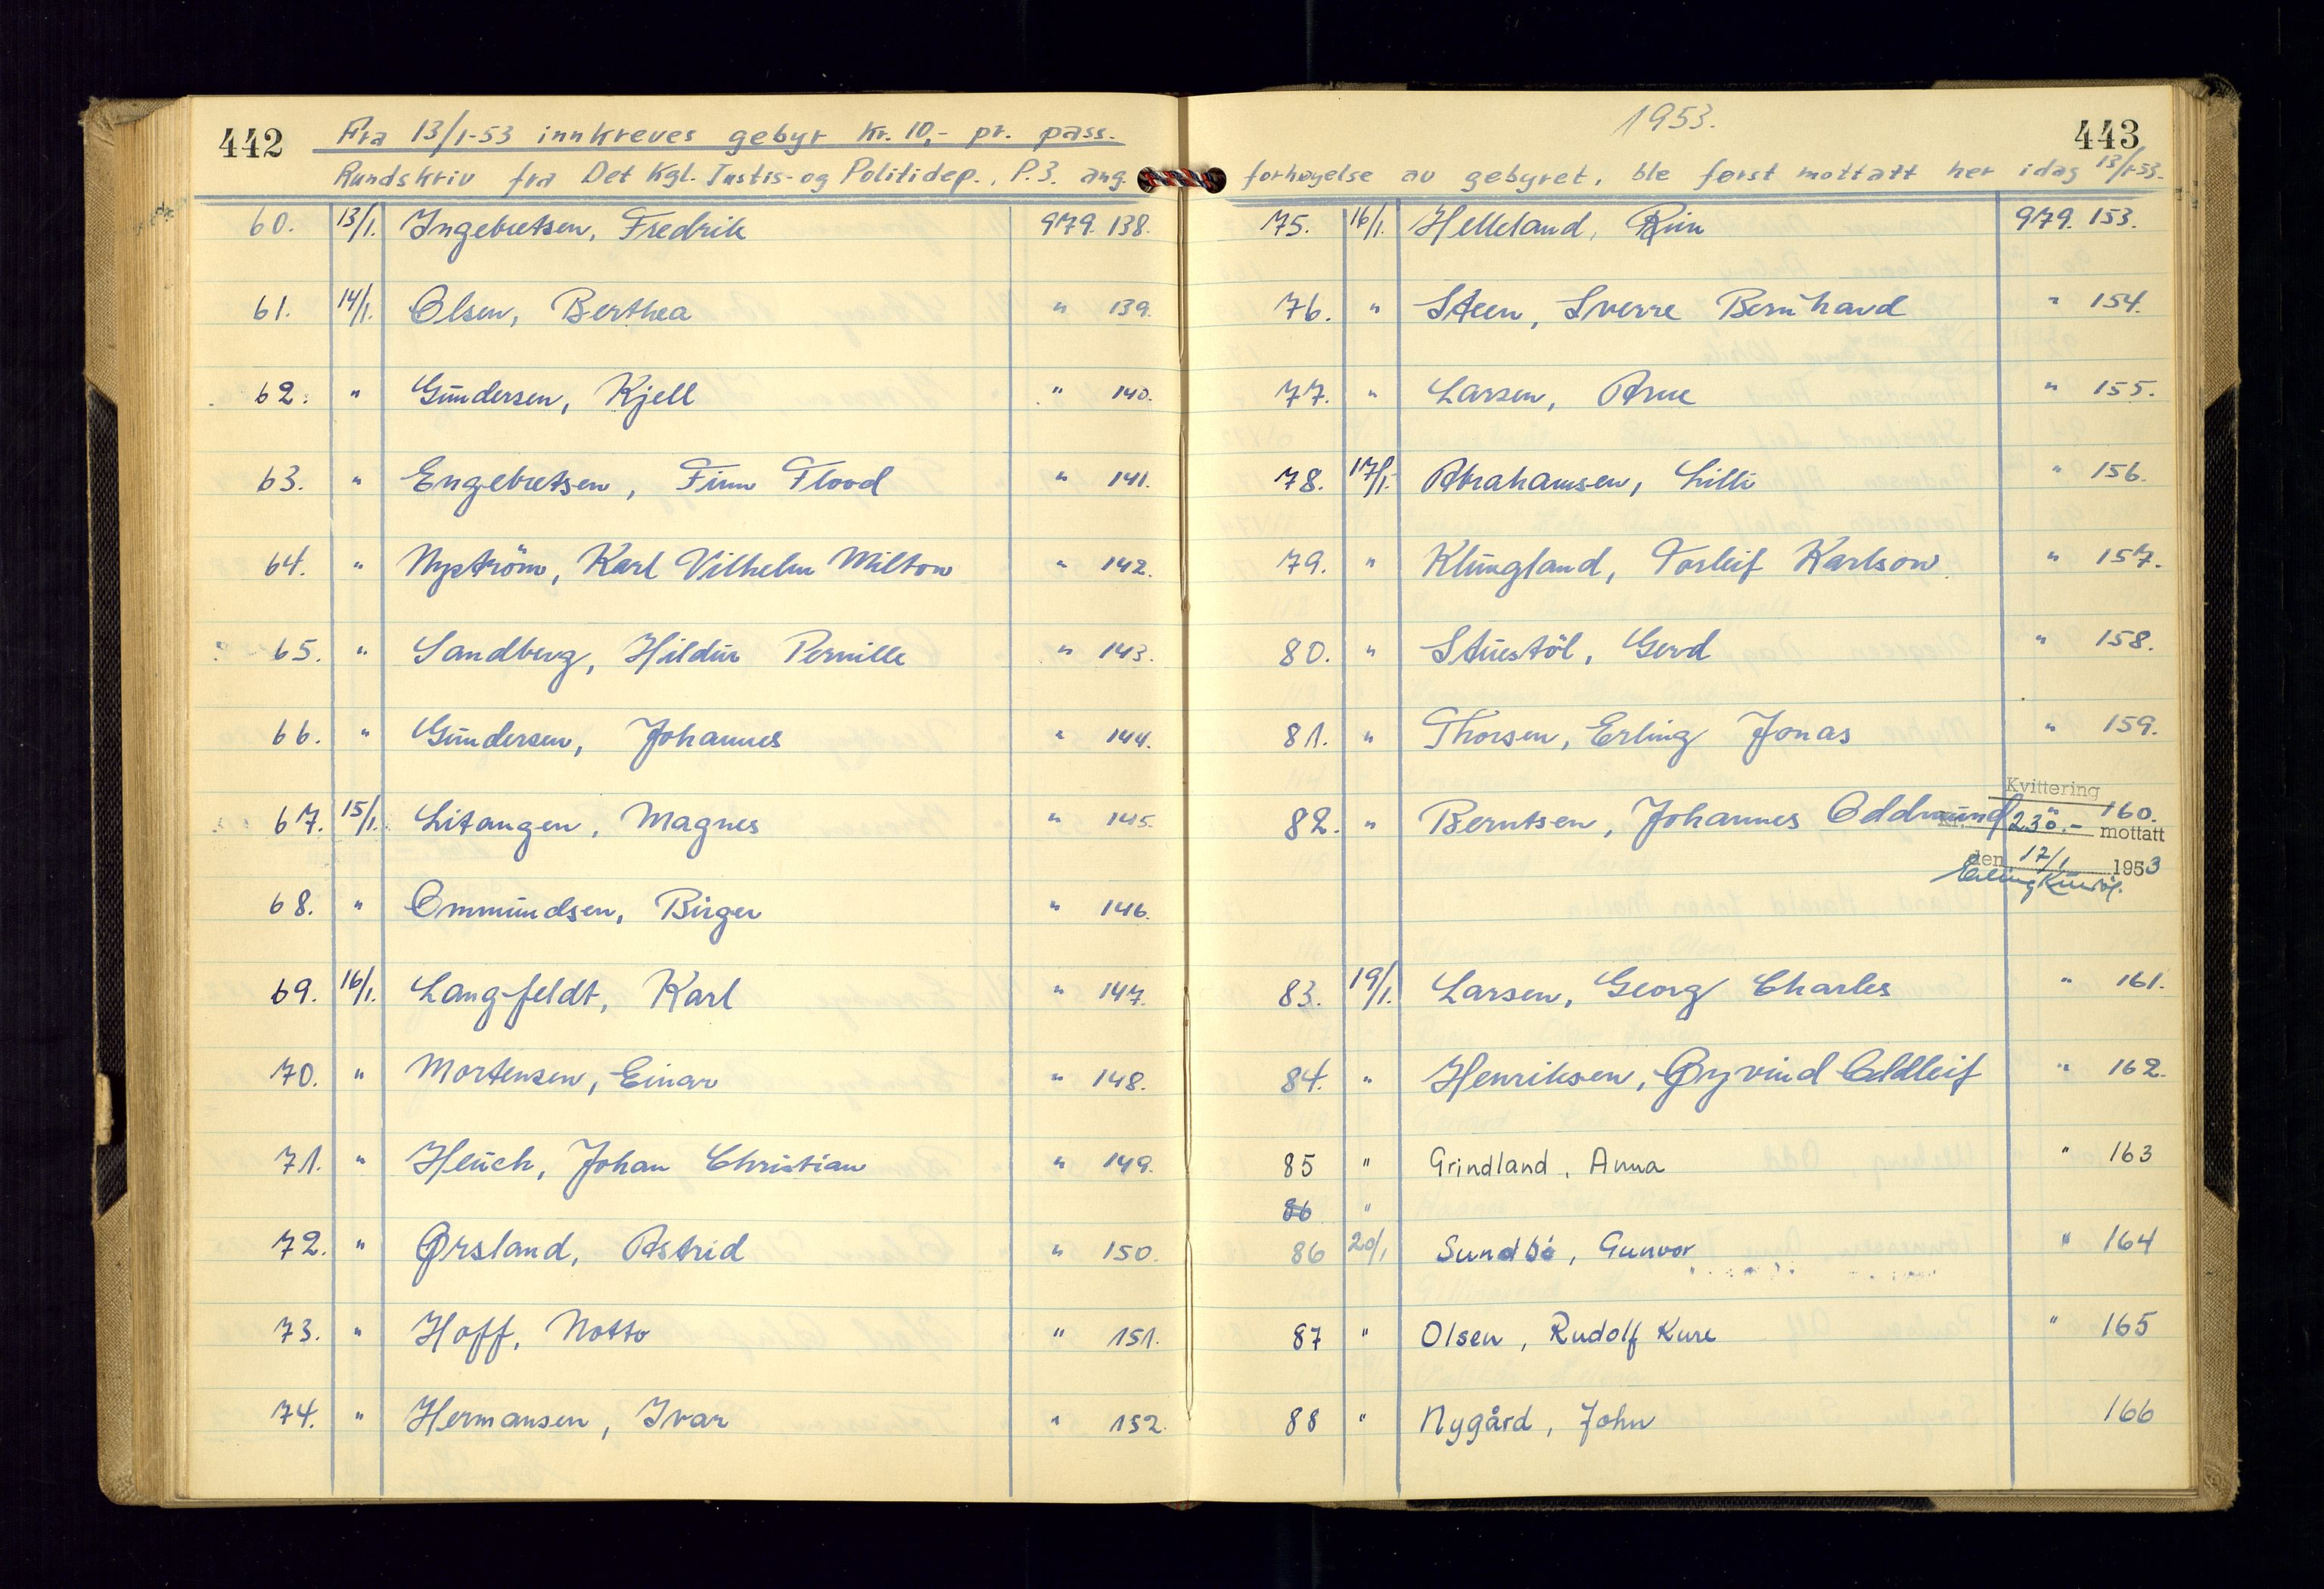 442 Fra 13/1-53 innkreves gebyr kr. 10,- pr. pass.
Rundskriv fra Det Kgl. Justis- og Politidep., P.3. ang.
60. 13/1. Ingebretsen, Fredrik 979. 138.
61. 14/1. Olsen, Berthea " 139.
62. " Gundersen, Kjell " 140.
63. " Engebretsen, Finn Flood " 141.
64. " Nyström, Karl Vilhelm Milton " 142.
65. " Sandberg, Hildur Pernille " 143.
66. " Gundersen, Johannes " 144.
67. 15/1. Litangen, Magnes " 145.
68. " Ommundsen, Birger " 146.
69. 16/1. Langfeldt, Karl " 147.
70. " Mortensen, Einar " 148.
71. " Heuch, Johan Christian " 149.
72. " Ørsland, Astrid " 150.
73. " Hoff, Notto " 151.
74. " Hermansen, Ivar " 152.
1953. 443
forhøyelse av gebyret, ble først mottatt her idag 13/1-53.
75. 16/1. Helleland, 979. 153.
76. " Steen, Sverre Bernhard " 154.
77. " Larsen, Arne " 155.
78. 17/1. Abrahamsen, Lilli " 156.
79. " Klungland, Torleif Karlson " 157.
80. " Stuestöl, Gerd " 158.
81. " Thorsen, Erling Jonas " 159.
Kvittering
82. " Berntsen, Johannes Oddmund " 160.
Kr. 230.- mottatt
den 17/1 1953
Erling
83. 19/1. Larsen, Georg Charles " 161.
84. " Henriksen, Øyvind Oddleif " 162.
85 " Grindland, Anna " 163
86 "
86 20/1 Sundbö, Gunvor " 164
87 " Olsen, Rudolf Kure " 165
88 " Nygård, John 166